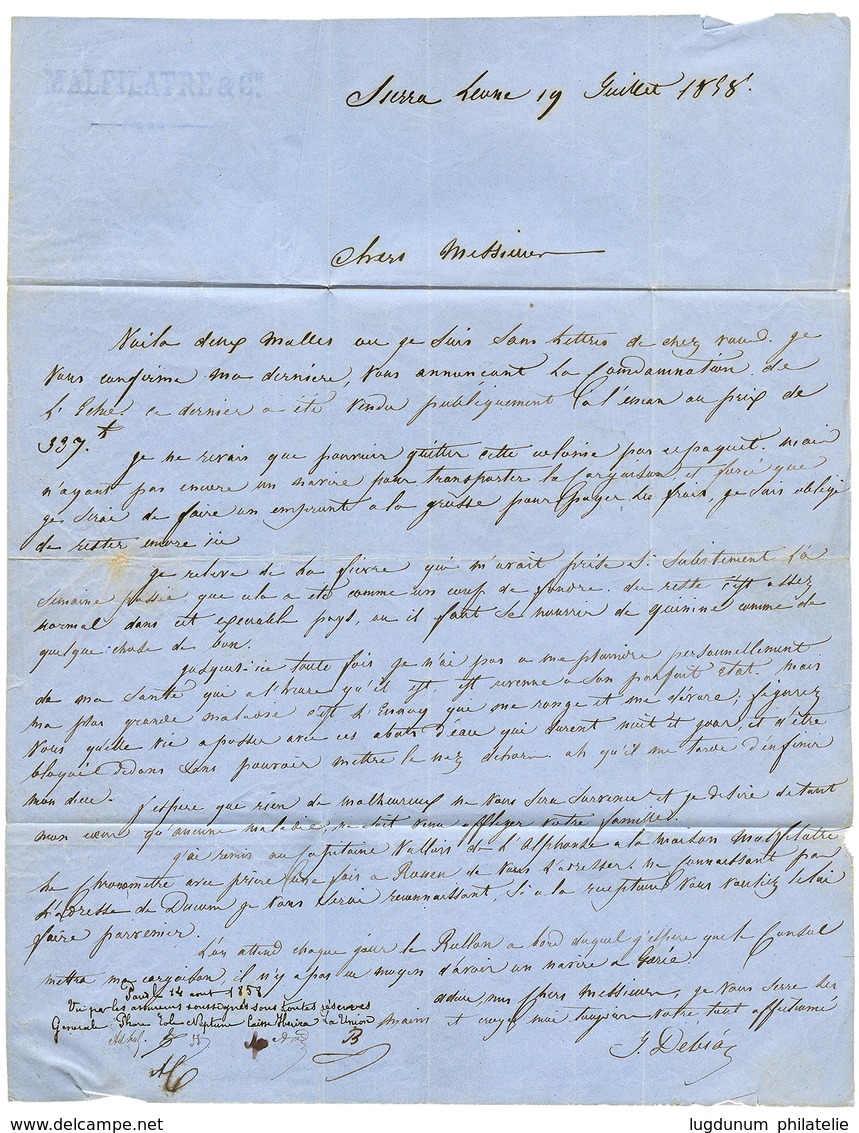 MALFILATRE & Cie
Sierra Leone 19 Juillet 1858.
Chers Messieurs
Voila deux Malles ou je suis sans lettres de chez vous. je
vous confirme ma derniere, vous annonçant la Condamnation de
L'Echo. ce dernier a été vendu publiquement à l'encan au prix de
337.
je ne revais que pouvoir quitter cette colonie par ce paquet mais
n'ayant pas encore un navire pour transporter la Cargaison et forcé que
je serai de faire un emprunt a la grosse pour payer les frais, je suis obligé
de rester encore ici
je releve de la fievre qui m'avait prise si subitement la
semaine passée que cela a été comme un coup de foudre. du reste c'est assez
normal dans cet execrable pays, ou il faut se nourrir de quinine comme de
quelque chose de bon.
jusqu'ici toute fois je n'ai pas a me plaindre personnellement
de ma santé qui a l'heure qu'il est, est revenue a son parfait etat. Mais
ma plus grande maladie c'est l'Ennuy que me ronge et me dévore; figurez
vous quelle vie a passer avec ces abats d'eau qui durent nuit et jour, et d'être
bloqué dedans sans pouvoir mettre le nez dehors. ah qu'il me tarde d'en finir
mon dieu.
j'espere que rien de malheureux ne vous sera survenu et je desire de tout
mon coeur qu'aucune maladie, ne soit venu affliger votre famille.
j'ai remis au Capitaine Vallois de L'Alphonse a la maison Malfilatre
le Chronomètre avec prière une fois a Rouen de vous l'adresser. ne connaissant pas
l'adresse de Ducom je vous serai reconnaissant, si a la reception vous vouliez le lui
faire parvenir.
L'on attend chaque jour le Rullon a bord duquel j'espere que le Consul
mettra ma cargaison, il n'y a pas eu moyen d'avoir un navire a Gorée.
adieu, mes chers Messieurs, je vous serre les
mains et croyez moi toujours votre tout affectionné
J. Debra
Paris le 14 aout 1858
Vu par les assureurs soussignés sous toutes réserves
Generale Phare Cole Neptune Caisse Iberica La Union
B
lugdunum philatelie
delcampe.net